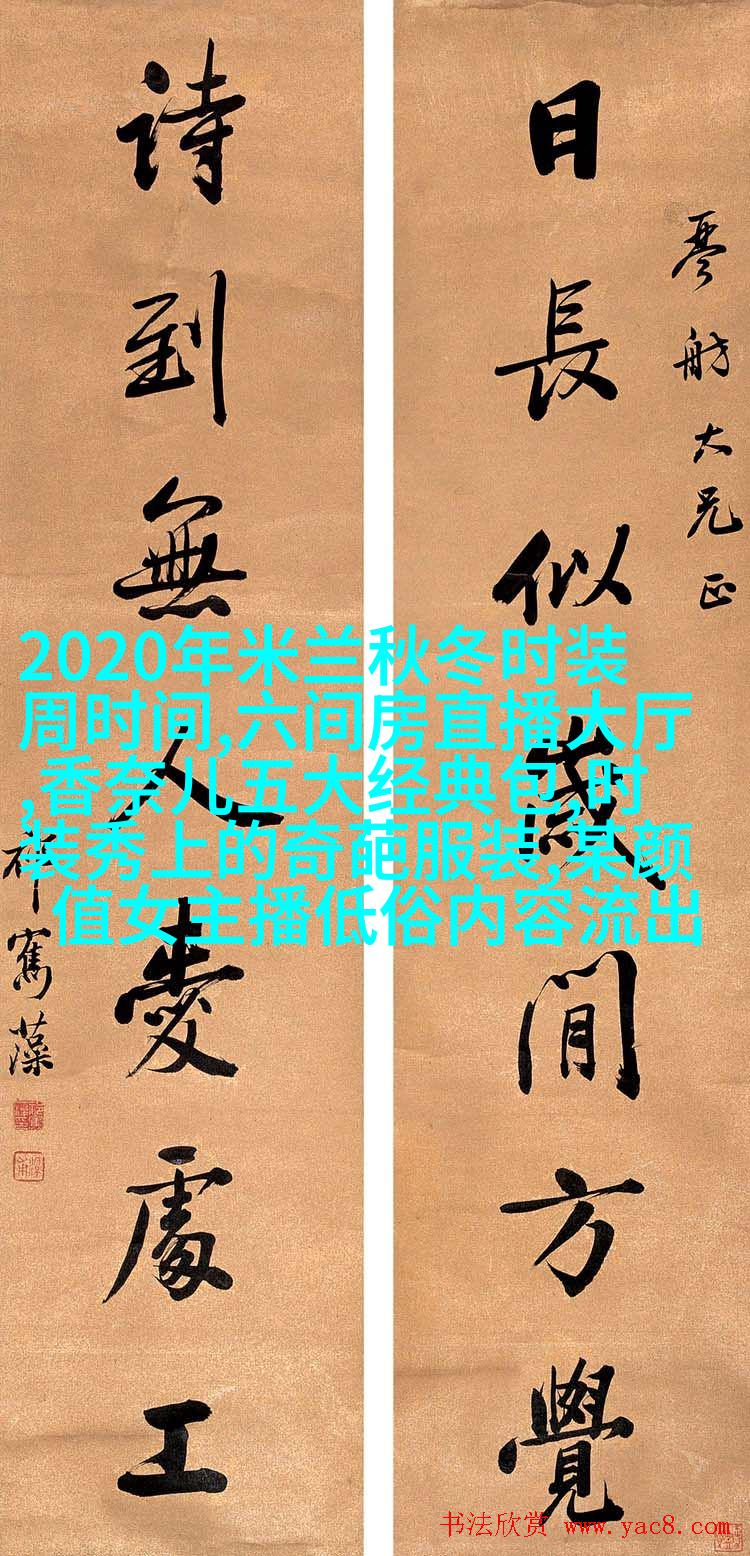 日長似歲閒方覺
琴舫大兄正
詩到無人愛處工
祁寯藻
2020年米兰秋冬时装
周时间,六间房直播大厅
,香奈儿五大经典包,时
装秀上的奇葩服装,某颜
值女主播低俗内容流出
书法欣赏 www.yac8.com